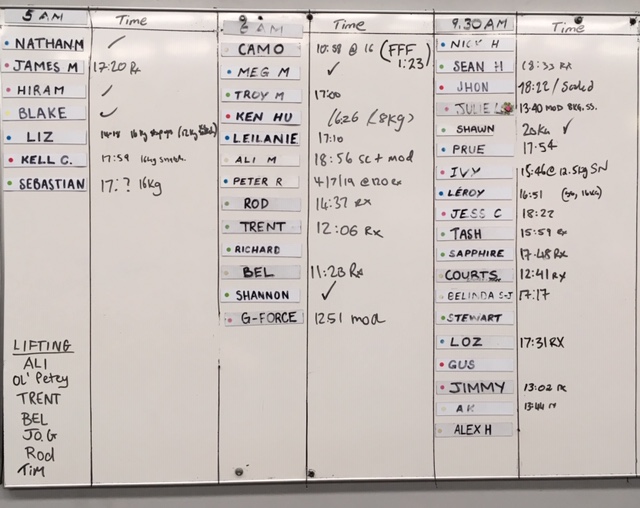 5 AM Time
NATHAN M ✓
JAMES M 17:20 Rx
HIRAM ✓
BLAKE ✓
LIZ
KELL C. 17:59 16kg
SEBASTIAN 17:? 16Kg
LIFTING
ALI
OL' Petey
TRENT
BEL
JO.G
Rod
TIM
8 AM Time
CAMO 10:58 @ 16 (FFF 1:23)
MEG M ✓
TROY M 17:00
KEN HU 16:26 (8kg)
LEILANIE 17:10
ALI M 18:56 sc + mod
PETER R
ROD 14:37 Rx
TRENT 12:06 Rx
RICHARD
BEL 11:28 Rx
SHANNON ✓
G-FORCE 1251 mod
9.30 AM Time
NICK H
SEAN H 18:33 Rx
JHON 18:22 / Scaled
JULIE 13:40 mod 8kg. ss.
SHAWN 20kg ✓
PRUE 17:54
IVY 15:46 @ 12.5kg SN
LEROY 16:51
JESS C 18:22
TASH 15:59 Rx
SAPPHIRE 17.48 Rx
COURTS 12:41 Rx
BELINDA S-J 17:17
STEWART
LOZ 17:31 RX
GUS
JIMMY 13:02 Rx
AK 13:44
ALEX H